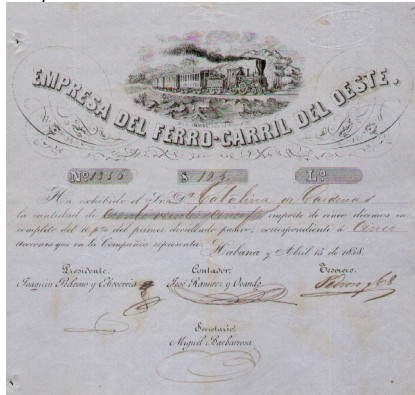 EMPRESA DEL FERRO-CARRIL DEL OESTE.
Nº 1256 $ 125 Lº
Ha exhibido el Sr. Dª Catalina de Cardenas
la cantidad de importe de cinco décimos en
completo del 10 p% del primer dividendo pasivo, correspondiente á Cinco
acciones que en la Compañia representa. Habana y Abril 15 de 1858.
Presidente. Contador. Tesorero.
Joaquin Pedroso y Echeverria José Ramirez y Ovando Pedroso y Cª
Secretario.
Miguel Barbarrosa